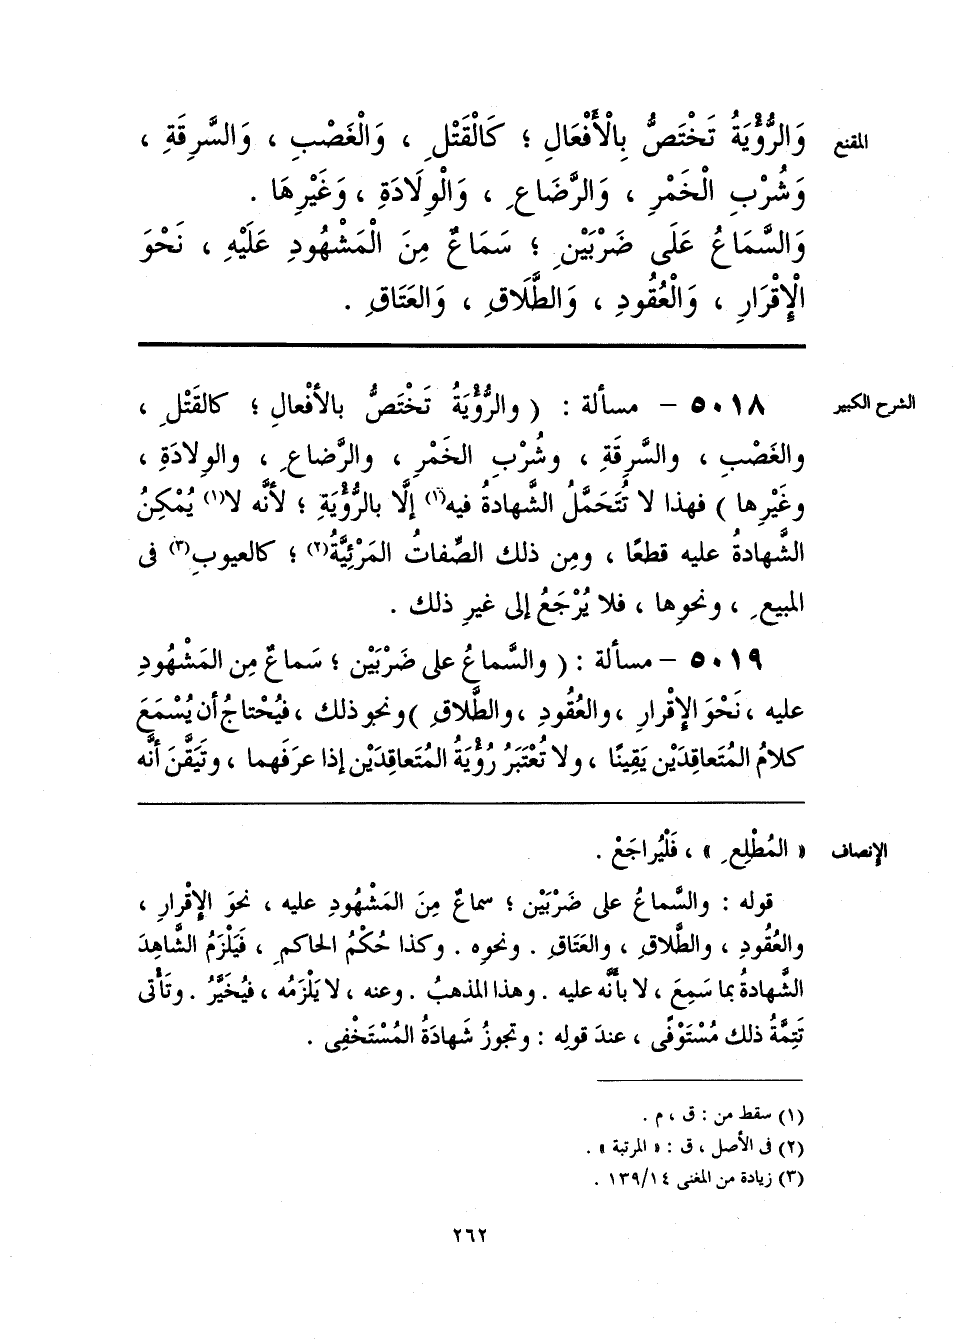 المقنع
وَالرُّؤْيَةُ تَخْتَصُّ بِالْأَفْعَالِ ؛ كَالْقَتْلِ ، وَالْغَصْبِ ، وَالسَّرِقَةِ ،
وَشُرْبِ الْخَمْرِ ، وَالرَّضَاعِ ، وَالْوِلَادَةِ ، وَغَيْرِهَا .
وَالسَّمَاعُ عَلَى ضَرْبَيْنِ ؛ سَمَاعٌ مِنَ الْمَشْهُودِ عَلَيْهِ ، نَحْوَ
الْإِقْرَارِ ، وَالْعُقُودِ ، وَالطَّلَاقِ ، وَالعَتَاقِ .
الشرح الكبير
٥٠١٨ – مسألة : ( والرُّؤْيَةُ تَخْتَصُّ بالأفْعالِ ؛ كالقَتْلِ ،
والغَصْبِ ، والسَّرِقَةِ ، وشُرْبِ الخَمْرِ ، والرَّضاعِ ، والوِلادَةِ ،
وغَيْرِها ) فهذا لا تُتَحَمَّلُ الشَّهادةُ فيه(١) إلَّا بالرُّؤْيَةِ ؛ لأنَّه لا(١) يُمْكِنُ
الشَّهادةُ عليه قطعًا ، ومِن ذلك الصِّفاتُ المَرْئِيَّةُ(٢) ؛ كالعيوبِ(٣) فى
المبيعِ ، ونحوِها ، فلا يُرْجَعُ إلى غيرِ ذلك .
٥٠١٩ – مسألة : ( والسَّماعُ على ضَرْبَيْن ؛ سَماعٌ مِن المَشْهُودِ
عليه ، نَحْوَ الإِقْرارِ ، والعُقُودِ ، والطَّلاقِ ) ونحوِ ذلك ، فيُحْتاجُ أن يُسْمَعَ
كلامُ المُتَعاقِدَيْن يَقِينًا ، ولا تُعْتَبَرُ رُؤْيَةُ المُتَعاقِدَيْن إذا عرَفَهما ، وتَيَقَّنَ أنَّه
الإنصاف
« المُطْلِعِ » ، فَلْيُراجَعْ .
قوله : والسَّماعُ على ضَرْبَيْن ؛ سماعٌ مِنَ المَشْهُودِ عليه ، نحوَ الإِقْرارِ ،
والعُقُودِ ، والطَّلاقِ ، والعَتَاقِ . ونحوِه . وكذا حُكْمُ الحاكمِ ، فَيَلْزَمُ الشَّاهِدَ
الشَّهادةُ بما سَمِعَ ، لا بأنَّه عليه . وهذا المذهبُ . وعنه ، لا يَلْزَمُه ، فيُخَيَّرُ . وتَأْتى
تَتِمَّةُ ذلك مُسْتَوْفًى ، عندَ قولِه : وتجوزُ شَهادَةُ المُسْتَخْفِى .
(١) سقط من : ق ، م .
(٢) فى الأصل ، ق : « المرتبة » .
(٣) زيادة من المغنى ١٣٩/١٤ .
٢٦٢